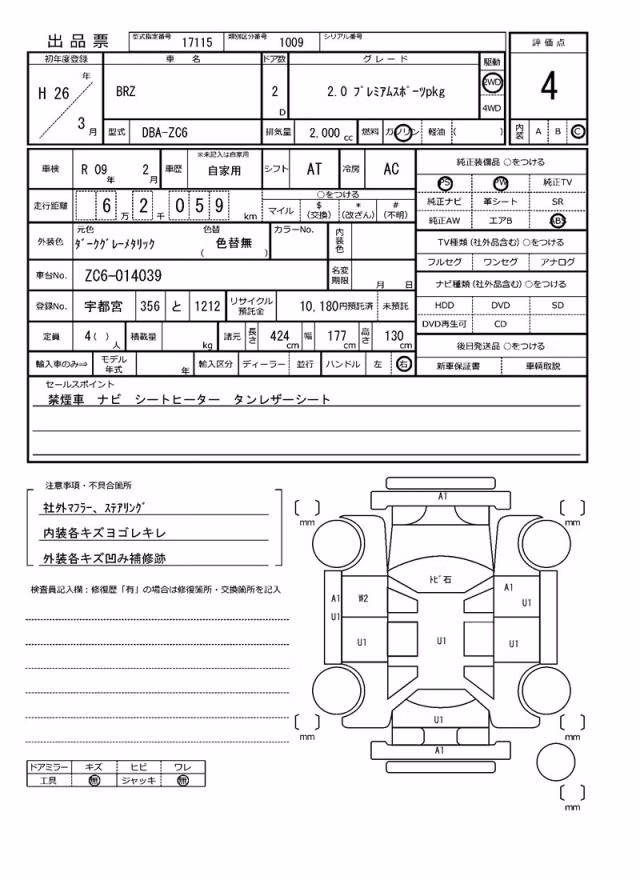 出品票 型式指定番号 17115 類別区分番号 1009 シリアル番号
初年度登録 車名 ドア数 グレード 駆動 評価点
H 26 年 3 月 BRZ 2 D 2.0 ﾌﾟﾚﾐｱﾑｽﾎﾟｰﾂpkg 2WD 4WD 4
型式 DBA-ZC6 排気量 2,000 cc 燃料 ガソリン 軽油 ( ) 内装 A B C
車検 R 09 年 2 月 車歴 ※未記入は自家用 自家用 シフト AT 冷房 AC
走行距離 6 万 2 千 0 5 9 km ○をつける
マイル $ (交換) * (改ざん) # (不明)
外装色 元色 ﾀﾞｰｸｸﾞﾚｰﾒﾀﾘｯｸ 色替 ( 色替無 ) カラーNo. 内装色
車台No. ZC6-014039 名変期限 月 日
登録No. 宇都宮 356 と 1212 リサイクル預託金 10,180円預託済 未預託
定員 4( ) 人 積載量 kg 諸元 長さ 424 cm 幅 177 cm 高さ 130 cm
輸入車のみ⇒ モデル年式 年 輸入区分 ディーラー 並行 ハンドル 左 右
純正装備品 ○をつける
PS PW 純正TV
純正ナビ 革シート SR
純正AW エアB ABS
TV種類 (社外品含む) ○をつける
フルセグ ワンセグ アナログ
ナビ種類 (社外品含む) ○をつける
HDD DVD SD
DVD再生可 CD
後日発送品 ○をつける
新車保証書 車輌取説
セールスポイント
禁煙車 ナビ シートヒーター タンレザーシート
注意事項・不具合箇所
社外ﾏﾌﾗｰ、ｽﾃｱﾘﾝｸﾞ
内装各キズヨゴレキレ
外装各キズ凹み補修跡
検査員記入欄：修復歴「有」の場合は修復箇所・交換箇所を記入
A1
mm mm
ﾄﾋﾞ石
A1 W2 A1
U1 U1
U1 U1 U1
U1
mm mm
A1
mm
ドアミラー キズ ヒビ ワレ
工具 無 ジャッキ 無